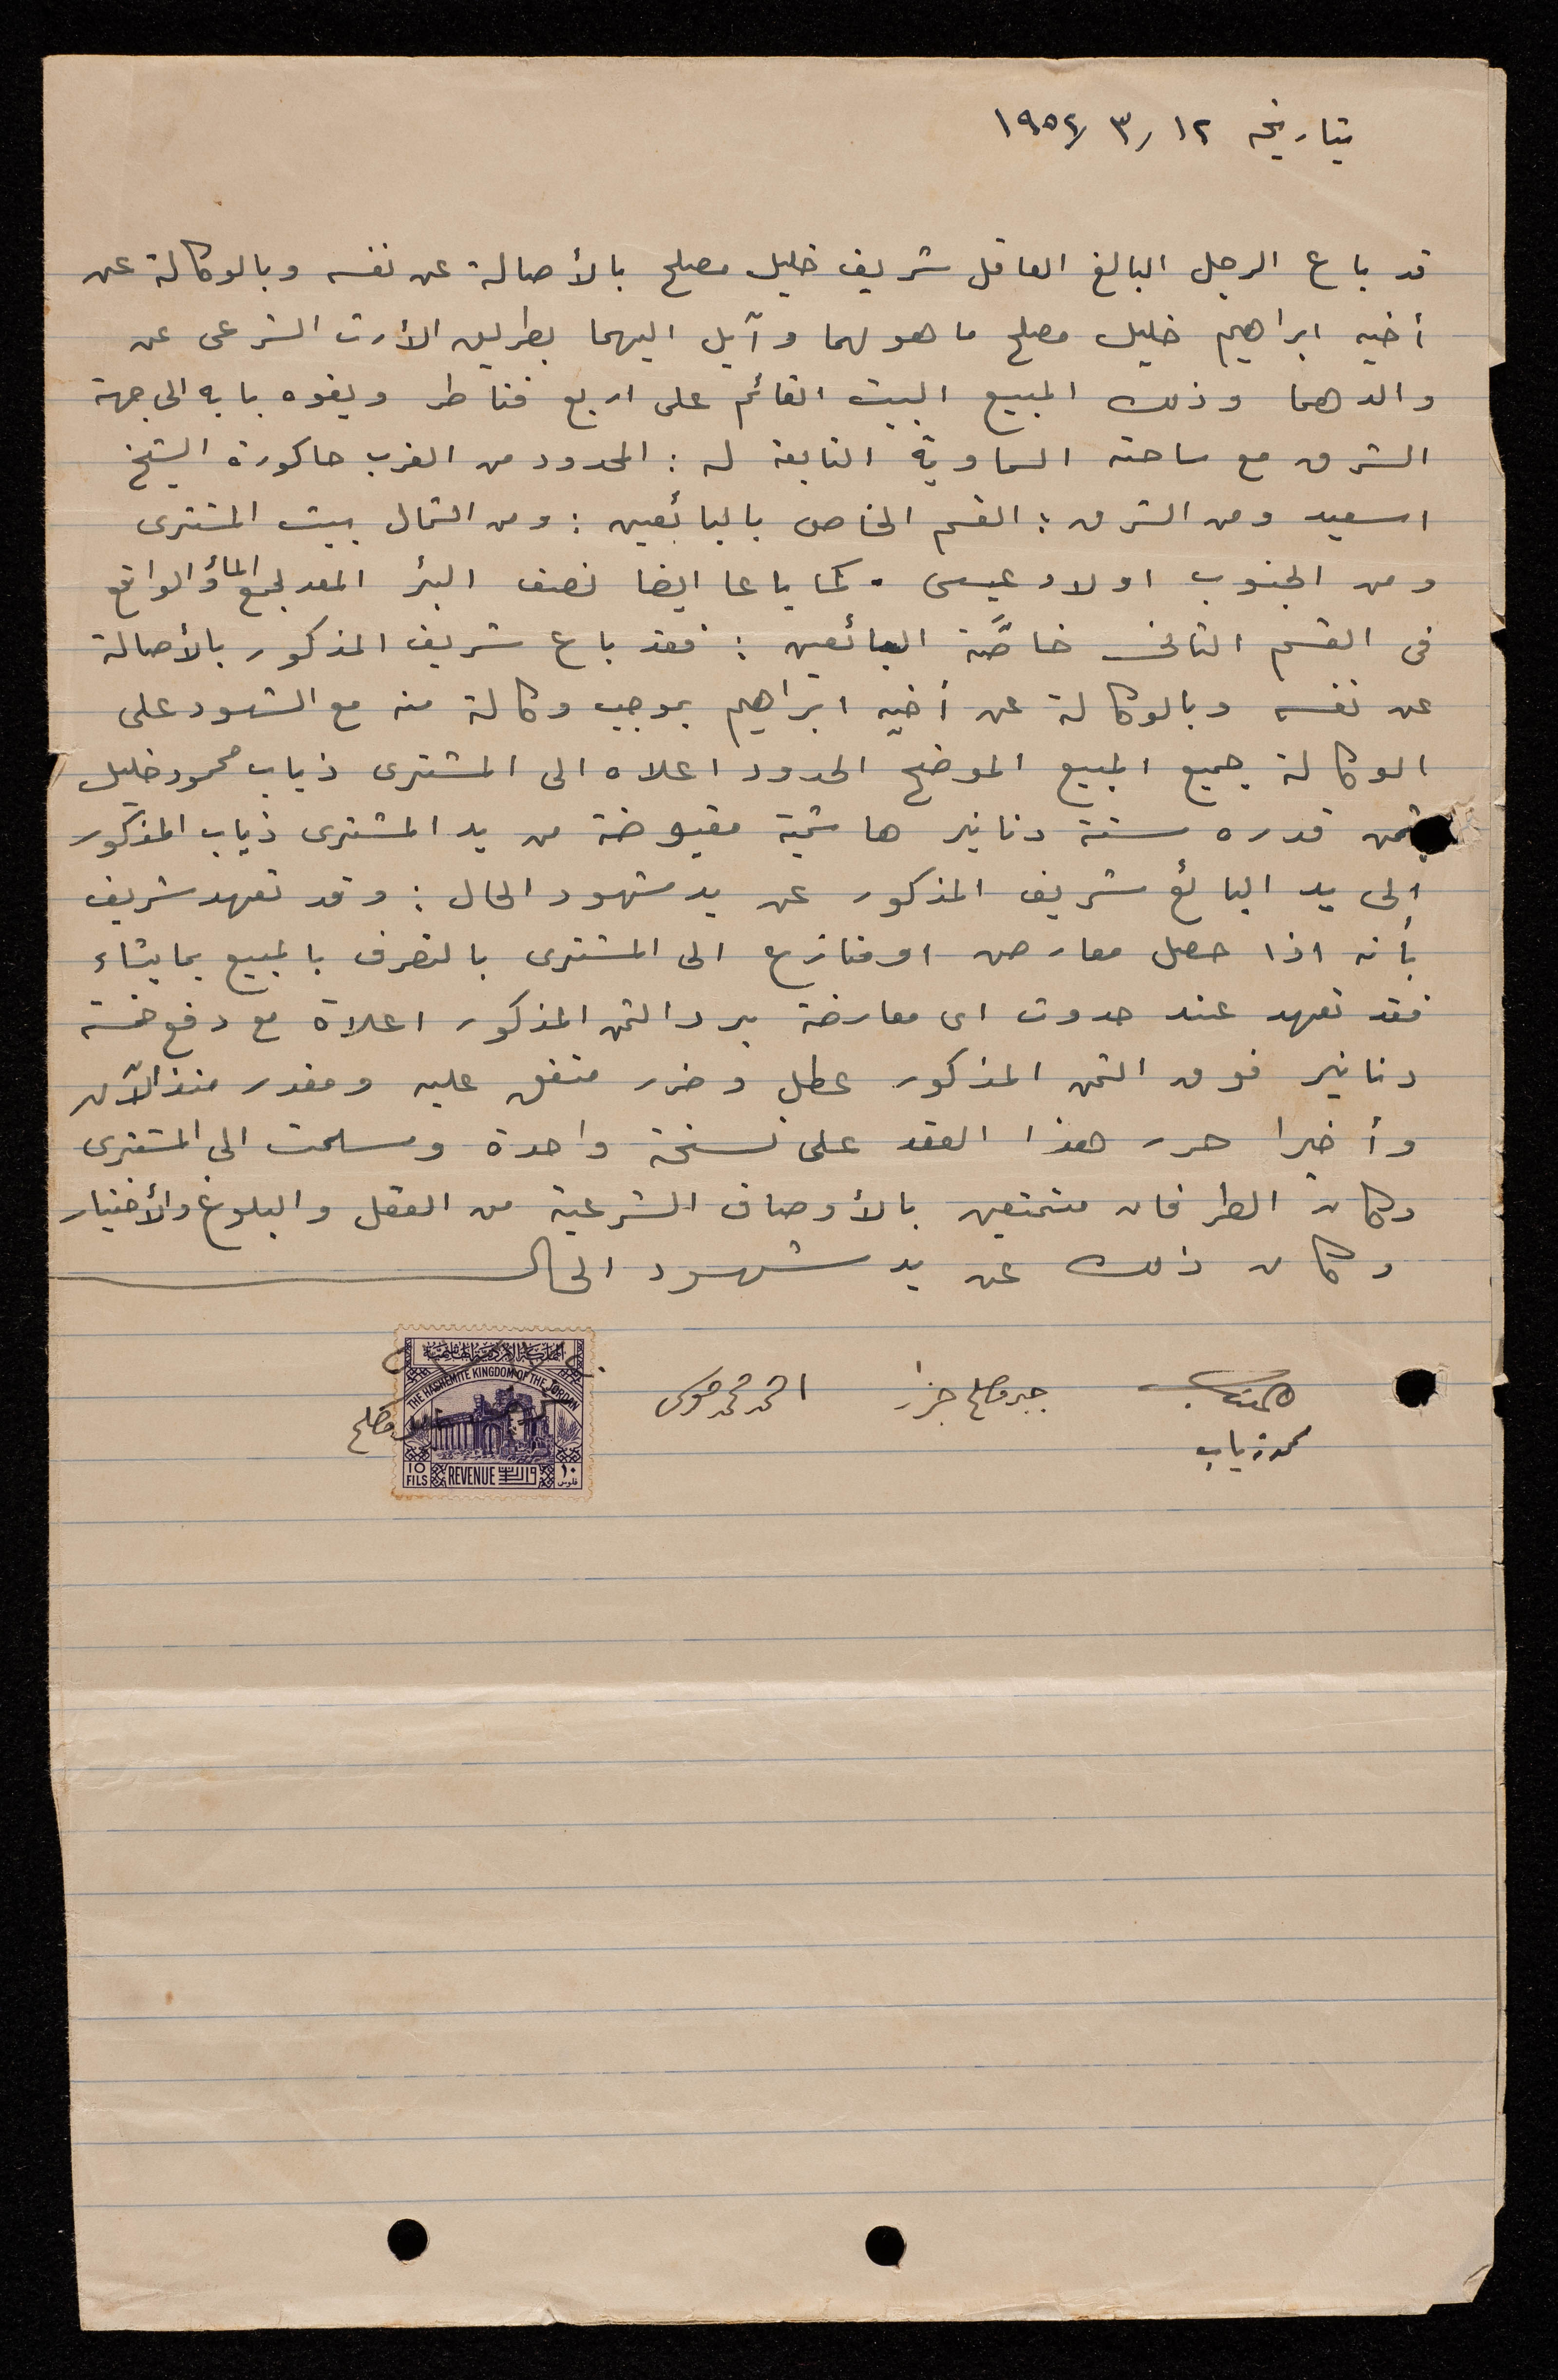 بتاريخه ١٢ / ٣ / ١٩٥٤
قد باع الرجل البالغ العاقل شريف خليل مصلح بالأصالة عن نفسه وبالوكالة عن
أخيه ابراهيم خليل مصلح ما هو لهما وآيل اليهما بطريق الأرث الشرعى عن
والدهما وذلك المبيع البيت القائم على اربع قناطر ويفوه بابه الى جهة
الشرق مع ساحته السماوية التابعة له : المحدود من الغرب حاكورة الشيخ
اسعيد ومن الشرق : القسم الخاص بالبائعين : ومن الشمال بيت المشترى
ومن الجنوب اولاد عيسى . كما باعا ايضا نصف البئر المعد لجمع الماؤ الواقع
فى القسم الثانى خاصَّة البائعين : فقد باع شريف المذكور بالأصالة
عن نفسه وبالوكالة عن أخيه ابراهيم بموجب وكالة منه مع الشهود على
الوكالة جميع المبيع الموضح الحدود اعلاه الى المشترى ذياب محمود خليل
بثمن قدره ستة دنانير هاشمية مقبوضة من يد المشترى ذياب المذكور
إلى يد البائع شريف المذكور عن يد شهود الحال : وقد تعهد شريف
بأنه اذا حصل معارض او منازع الى المشترى بالتصرف بالمبيع بما يشاء
فقد تعهد عند حدوث اى معارضة برد الثمن المذكور اعلاه مع دفع خمسة
دنانير فوق الثمن المذكور عطل وضرر متفق عليه ومقدر منذ الآن
وأخيرا حرر هذا العقد على نسخة واحدة وسلمت الى المشترى
وكان الطرفان متمتعين بالأوصاف الشرعية من العقل والبلوغ والأختيار
وكان ذلك عن يد شهود الحال
احمد محمد موسى
جبر مصلح
محمد ذياب
مصلح
المملكة الأردنية الهاشمية
THE HASHEMITE KINGDOM OF THE JORDAN
10 FILS REVENUE ١٠ فلوس